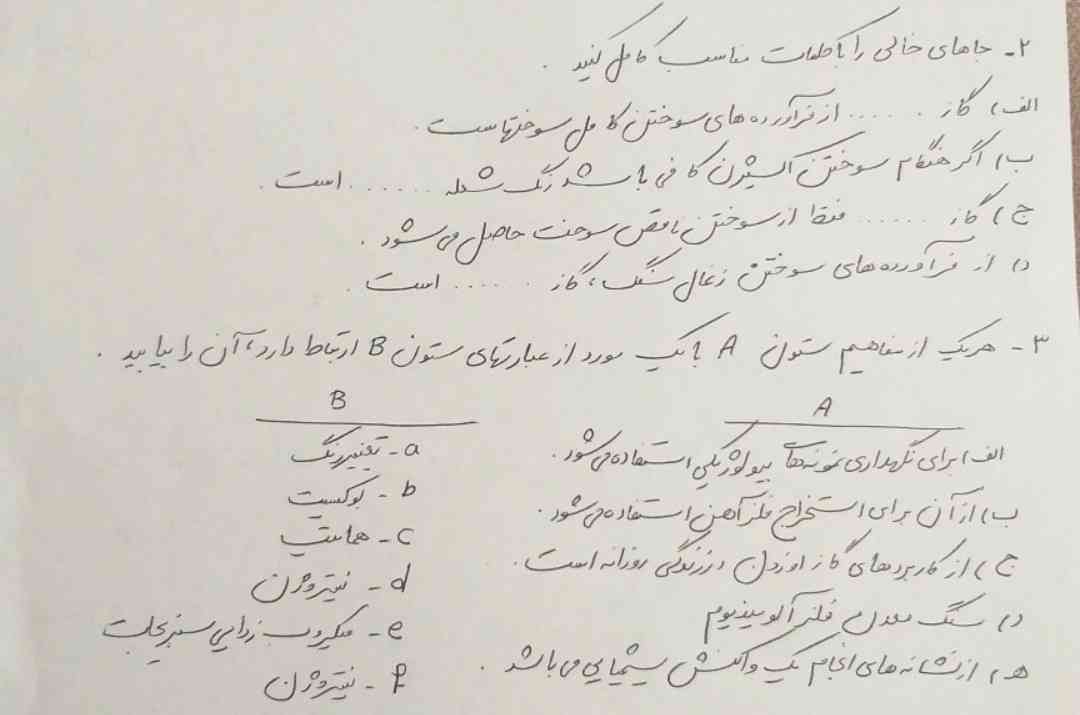 ۲- جاهای خالی را با کلمات مناسب کامل کنید.
الف) گاز ...... از فرآورده های سوختن کامل سوختهاست.
ب) اگر هنگام سوختن اکسیژن کافی باشد رنگ شعله ...... است.
ج) گاز ...... فقط از سوختن ناقص سوخت حاصل می شود.
د) از فرآورده های سوختن زغال سنگ، گاز ...... است.
۳- هریک از مفاهیم ستون A با یک مورد از عبارتهای ستون B ارتباط دارد، آن را بیابید.
A
الف) برای نگهداری نمونه های بیولوژیکی استفاده می شود.
ب) از آن برای استخراج فلز آهن استفاده می شود.
ج) از کاربردهای گاز اوزون در زندگی روزانه است.
د) سنگ معدن فلز آلومینیوم
ه) از نشانه های انجام یک واکنش شیمیایی می باشد.
B
a- تغییر رنگ
b- بوکسیت
c- هماتیت
d- نیتروژن
e- میکروب زدایی سبزیجات
f- نیتروژن